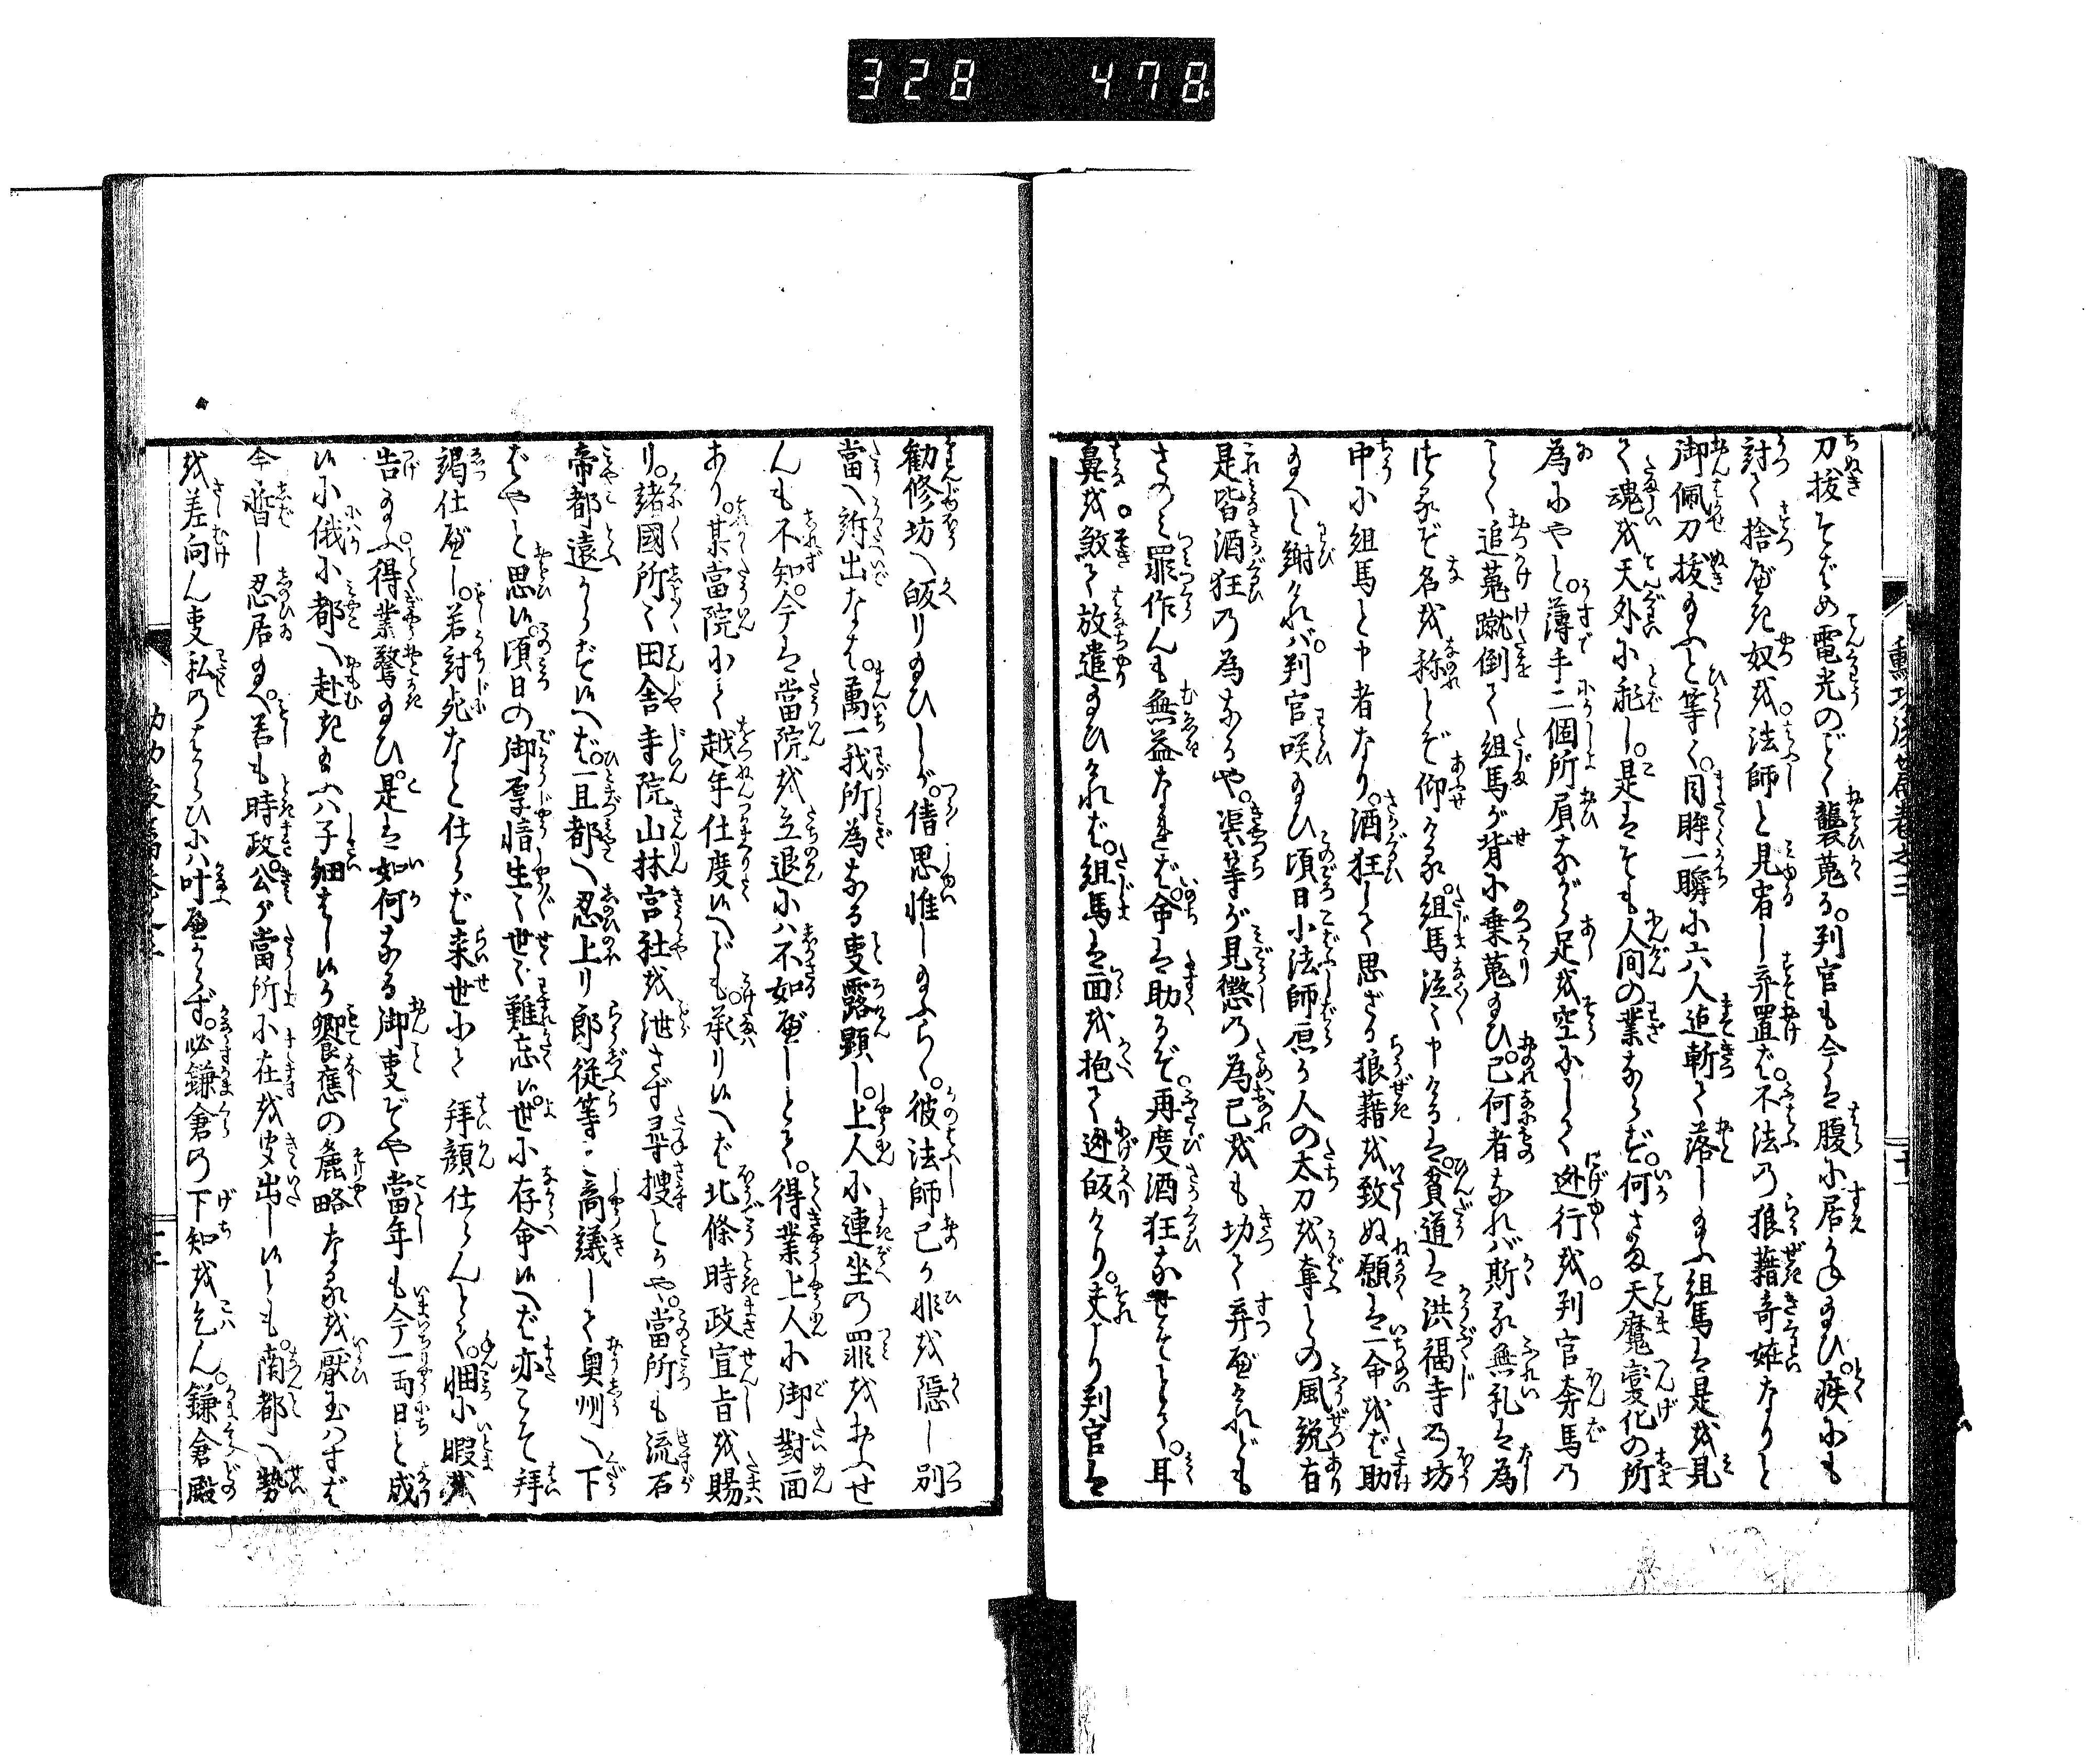 328 478
刀抜そばめ電光のごく襲蒐る。判官も今は腹に居かね玉ひ。疾にも
討て捨べき奴を法師と見宥し弃置ば。不法の狼藉奇怪なりと
御佩刀抜玉ふと等く。目眸一瞬に六人迠斬て落し玉ふ組馬は是を見
て魂を天外に飛し。是はそも人間の業ならず。何さま天魔変化の所
為にやと。薄手二個所肩ながら足を空にして迯行を。判官奔馬の
ごく追蒐蹴倒て組馬が背に乗蒐玉ひ。己何者なれバ斯る無礼は為
けるぞ名を称とぞ仰ける。組馬泣々申けるは。貧道は洪福寺の坊
中に組馬と申者なり。酒狂して思ざる狼藉を致ぬ願は一命をば助
玉へと謝ければ。判官咲玉ひ頃日小法師原が人の太刀を奪との風説有
是皆酒狂の為なるや。渠等が見懲の為己をも切て弃べけれども
さのミ罪作んも無益なれば。命は助るぞ。再度酒狂なせそとて。耳
鼻を殺て放遣玉ひければ。組馬は面を抱て迯皈けり。夫より判官は
勧修坊へ皈り玉ひしが。倩思惟し玉ふらく。彼法師己が非を隠し別
當へ訴出なば。萬一我所為なる事露顕し。上人に連坐の罪をおふせ
んも不知。今は當院を立退にハ不如べしとて。得業上人に御對面
あり。某當院にて越年仕度候へども。承り候へば北條時政宣旨を賜
り。諸國所々田舎寺院山林宮社を泄さず尋捜とかや。當所も流石
帝都遠からず候へば。一旦都へ忍上り郎従等と商議して奥州へ下
ばやと思候。頃日の御厚情生々世々難忘候。世に存命候へば亦こそ拜
謁仕べし。若討死なと仕らば来世にて拜顔仕らんとて。悃に暇を
告玉ふ。得業驚玉ひ。是は如何なる御事ぞや當年も今一両日と成
候に俄に都へ赴き玉ふハ子細ばし候か饗應の麁略なるを厭玉ハすば
今暫し忍居玉へ。若も時政公が當所に在を聞出し候とも。南都へ勢
を差向ん事私のはからひにハ叶べからず。必鎌倉の下知を乞ん。鎌倉殿